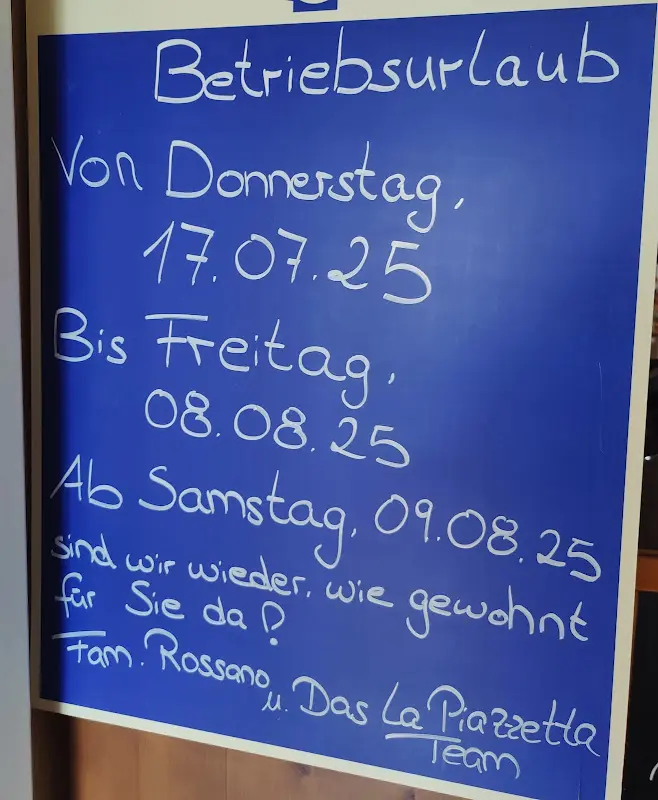 Betriebsurlaub
Von Donnerstag,
17.07.25
Bis Freitag,
08.08.25
Ab Samstag, 09.08.25
sind wir wieder, wie gewohnt
für Sie da!
Fam. Rossano
u. Das La Piazzetta
Team